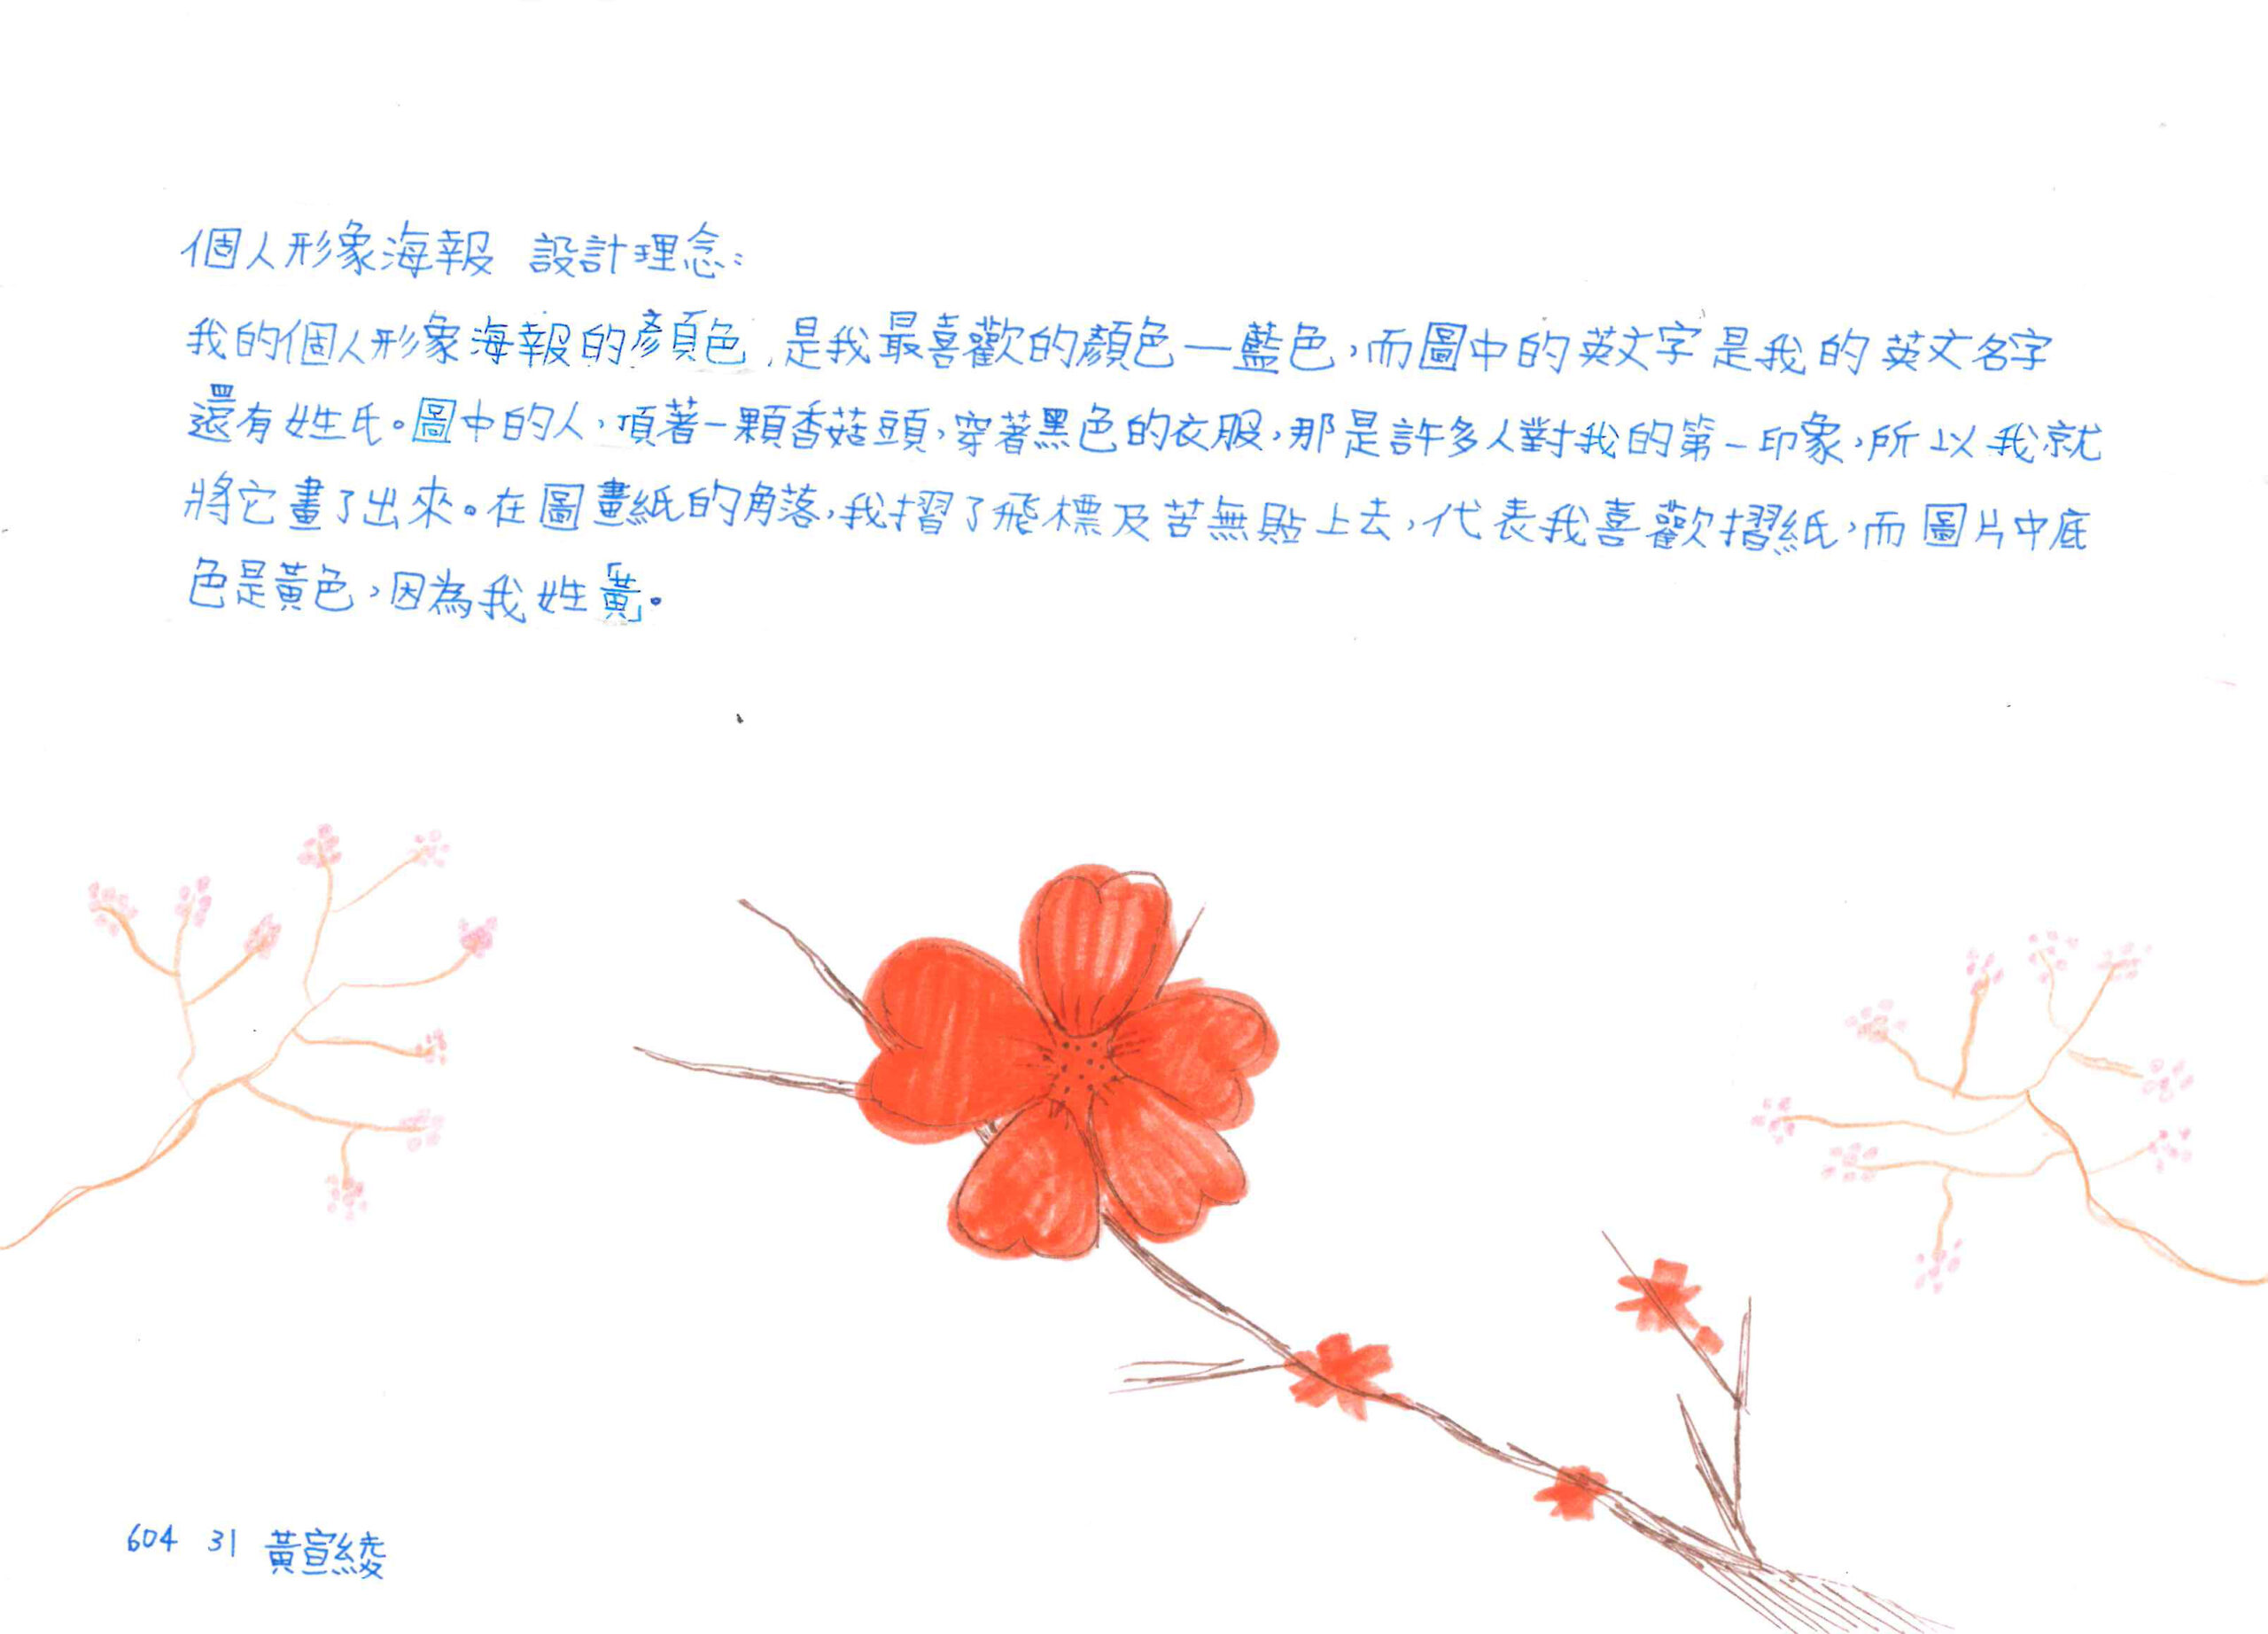 個人形象海報 設計理念：
我的個人形象海報的顏色，是我最喜歡的顏色—藍色，而圖中的英文字是我的英文名字
還有姓氏。圖中的人，頂著一顆香菇頭，穿著黑色的衣服，那是許多人對我的第一印象，所以我就
將它畫了出來。在圖畫紙的角落，我摺了飛標及苦無貼上去，代表我喜歡摺紙，而圖片中底
色是黃色，因為我姓「黃」。
604 31 黃宣綾